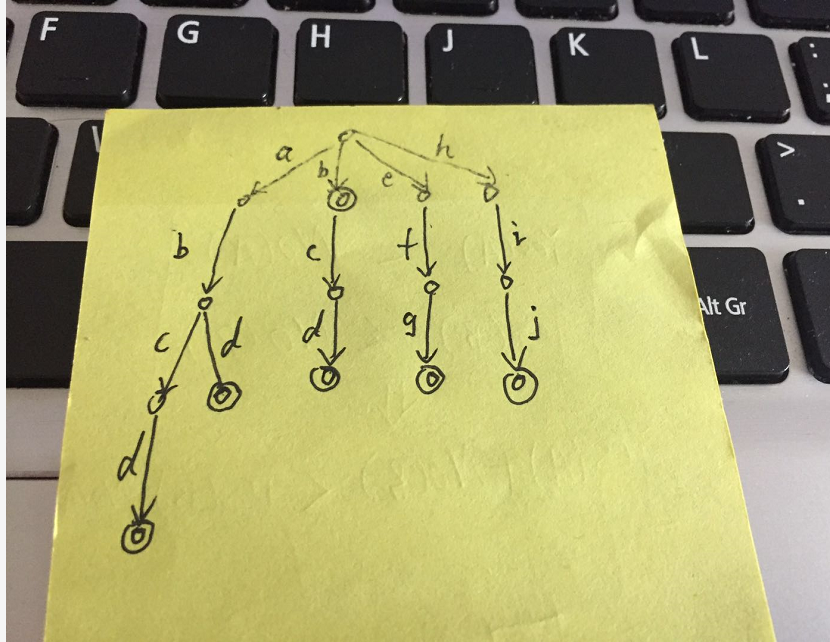 F G H J K L :
;
W >
.
Alt Gr
a b e h
b c f i
c d d g j
d